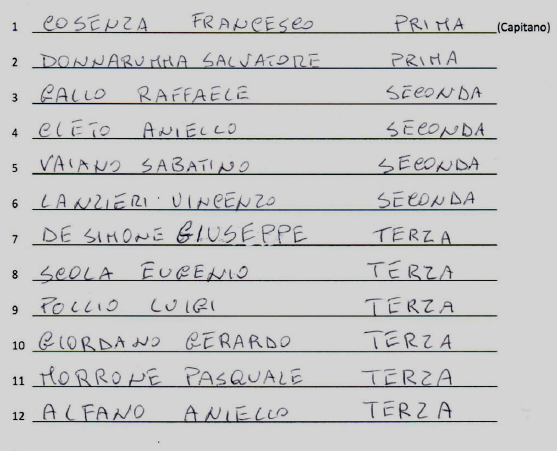 1 COSENZA FRANCESCO PRIMA (Capitano)
2 DONNARUMMA SALVATORE PRIMA
3 GALLO RAFFAELE SECONDA
4 CLETO ANIELLO SECONDA
5 VAIANO SABATINO SECONDA
6 LANZIERI VINCENZO SECONDA
7 DE SIMONE GIUSEPPE TERZA
8 SCOLA EUGENIO TERZA
9 POLLIO LUIGI TERZA
10 GIORDANO GERARDO TERZA
11 MORRONE PASQUALE TERZA
12 ALFANO ANIELLO TERZA